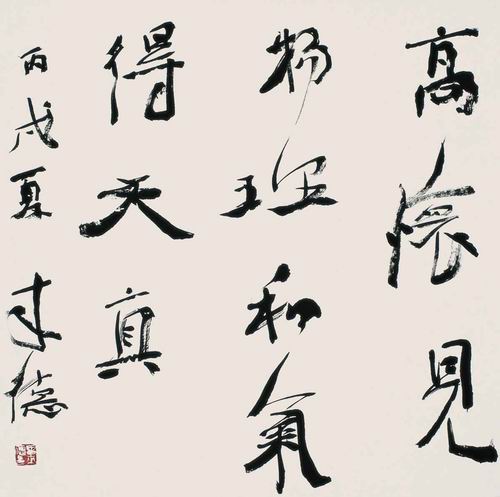 高懷見
物理和氣
得天真
丙戌夏 德